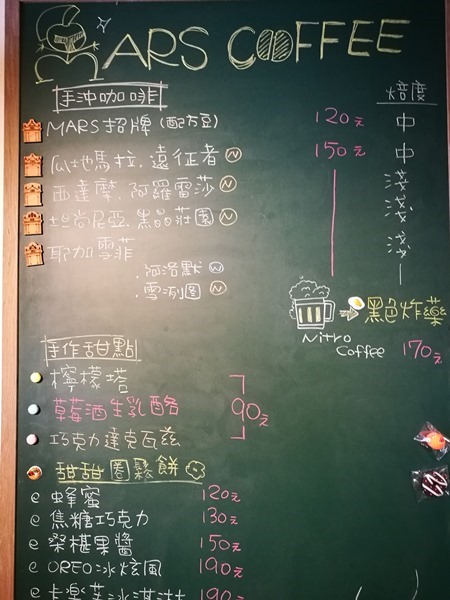 MARS COFFEE
手沖咖啡
焙度
MARS招牌(配方豆) 120元 中
瓜地馬拉.遠征者 N 150元 中
西達摩.阿羅雷莎 N 淺
坦尚尼亞.黑晶莊園 N 淺
耶加雪菲 淺
.阿洛默 N
.雪冽圖 N
黑色炸藥
Nitro Coffee 170元
手作甜點
檸檬塔
草莓酒生乳酪 90元
巧克力達克瓦茲
甜甜圈鬆餅
蜂蜜 120元
焦糖巧克力 130元
桑椹果醬 150元
OREO冰炫風 190元
卡樂芙冰淇淋 190